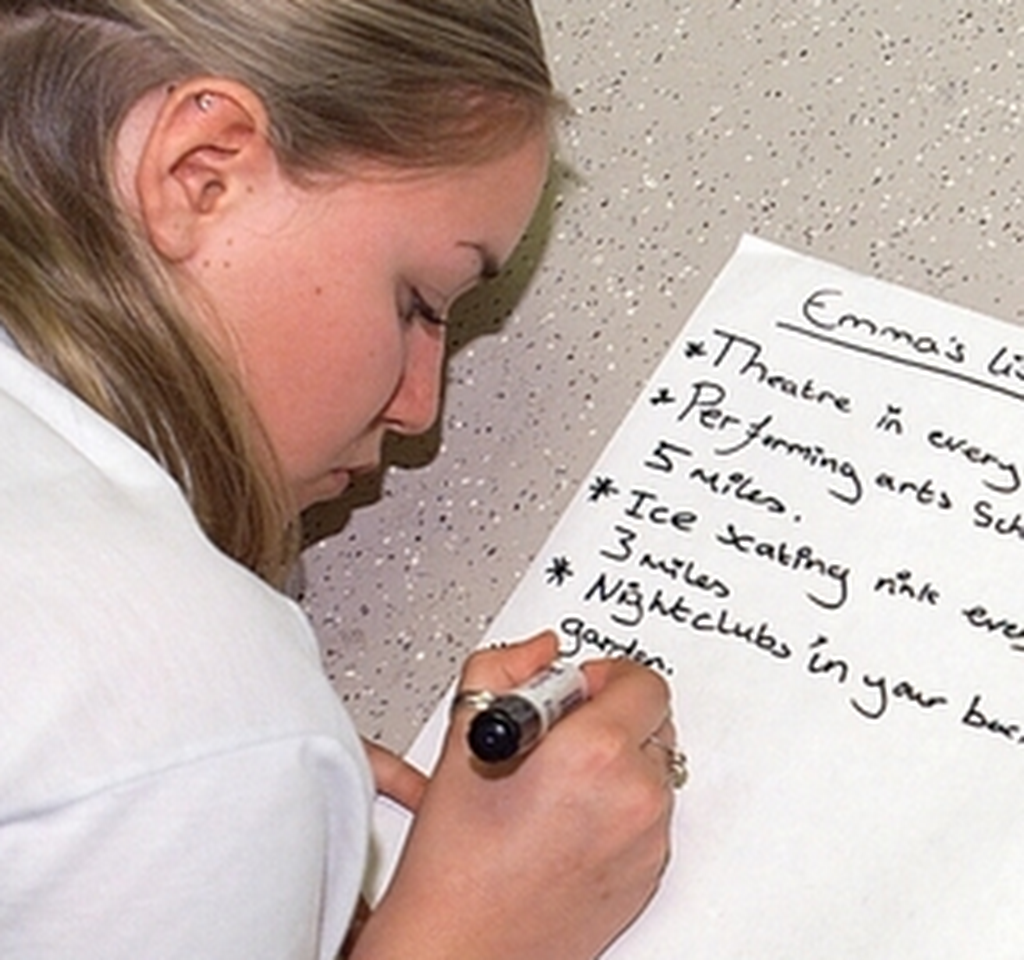 Emma's lis
* Theatre in every
* Performing arts Scho
5 miles.
* Ice scating rink every
3 miles
* Nightclubs in your back
garden.